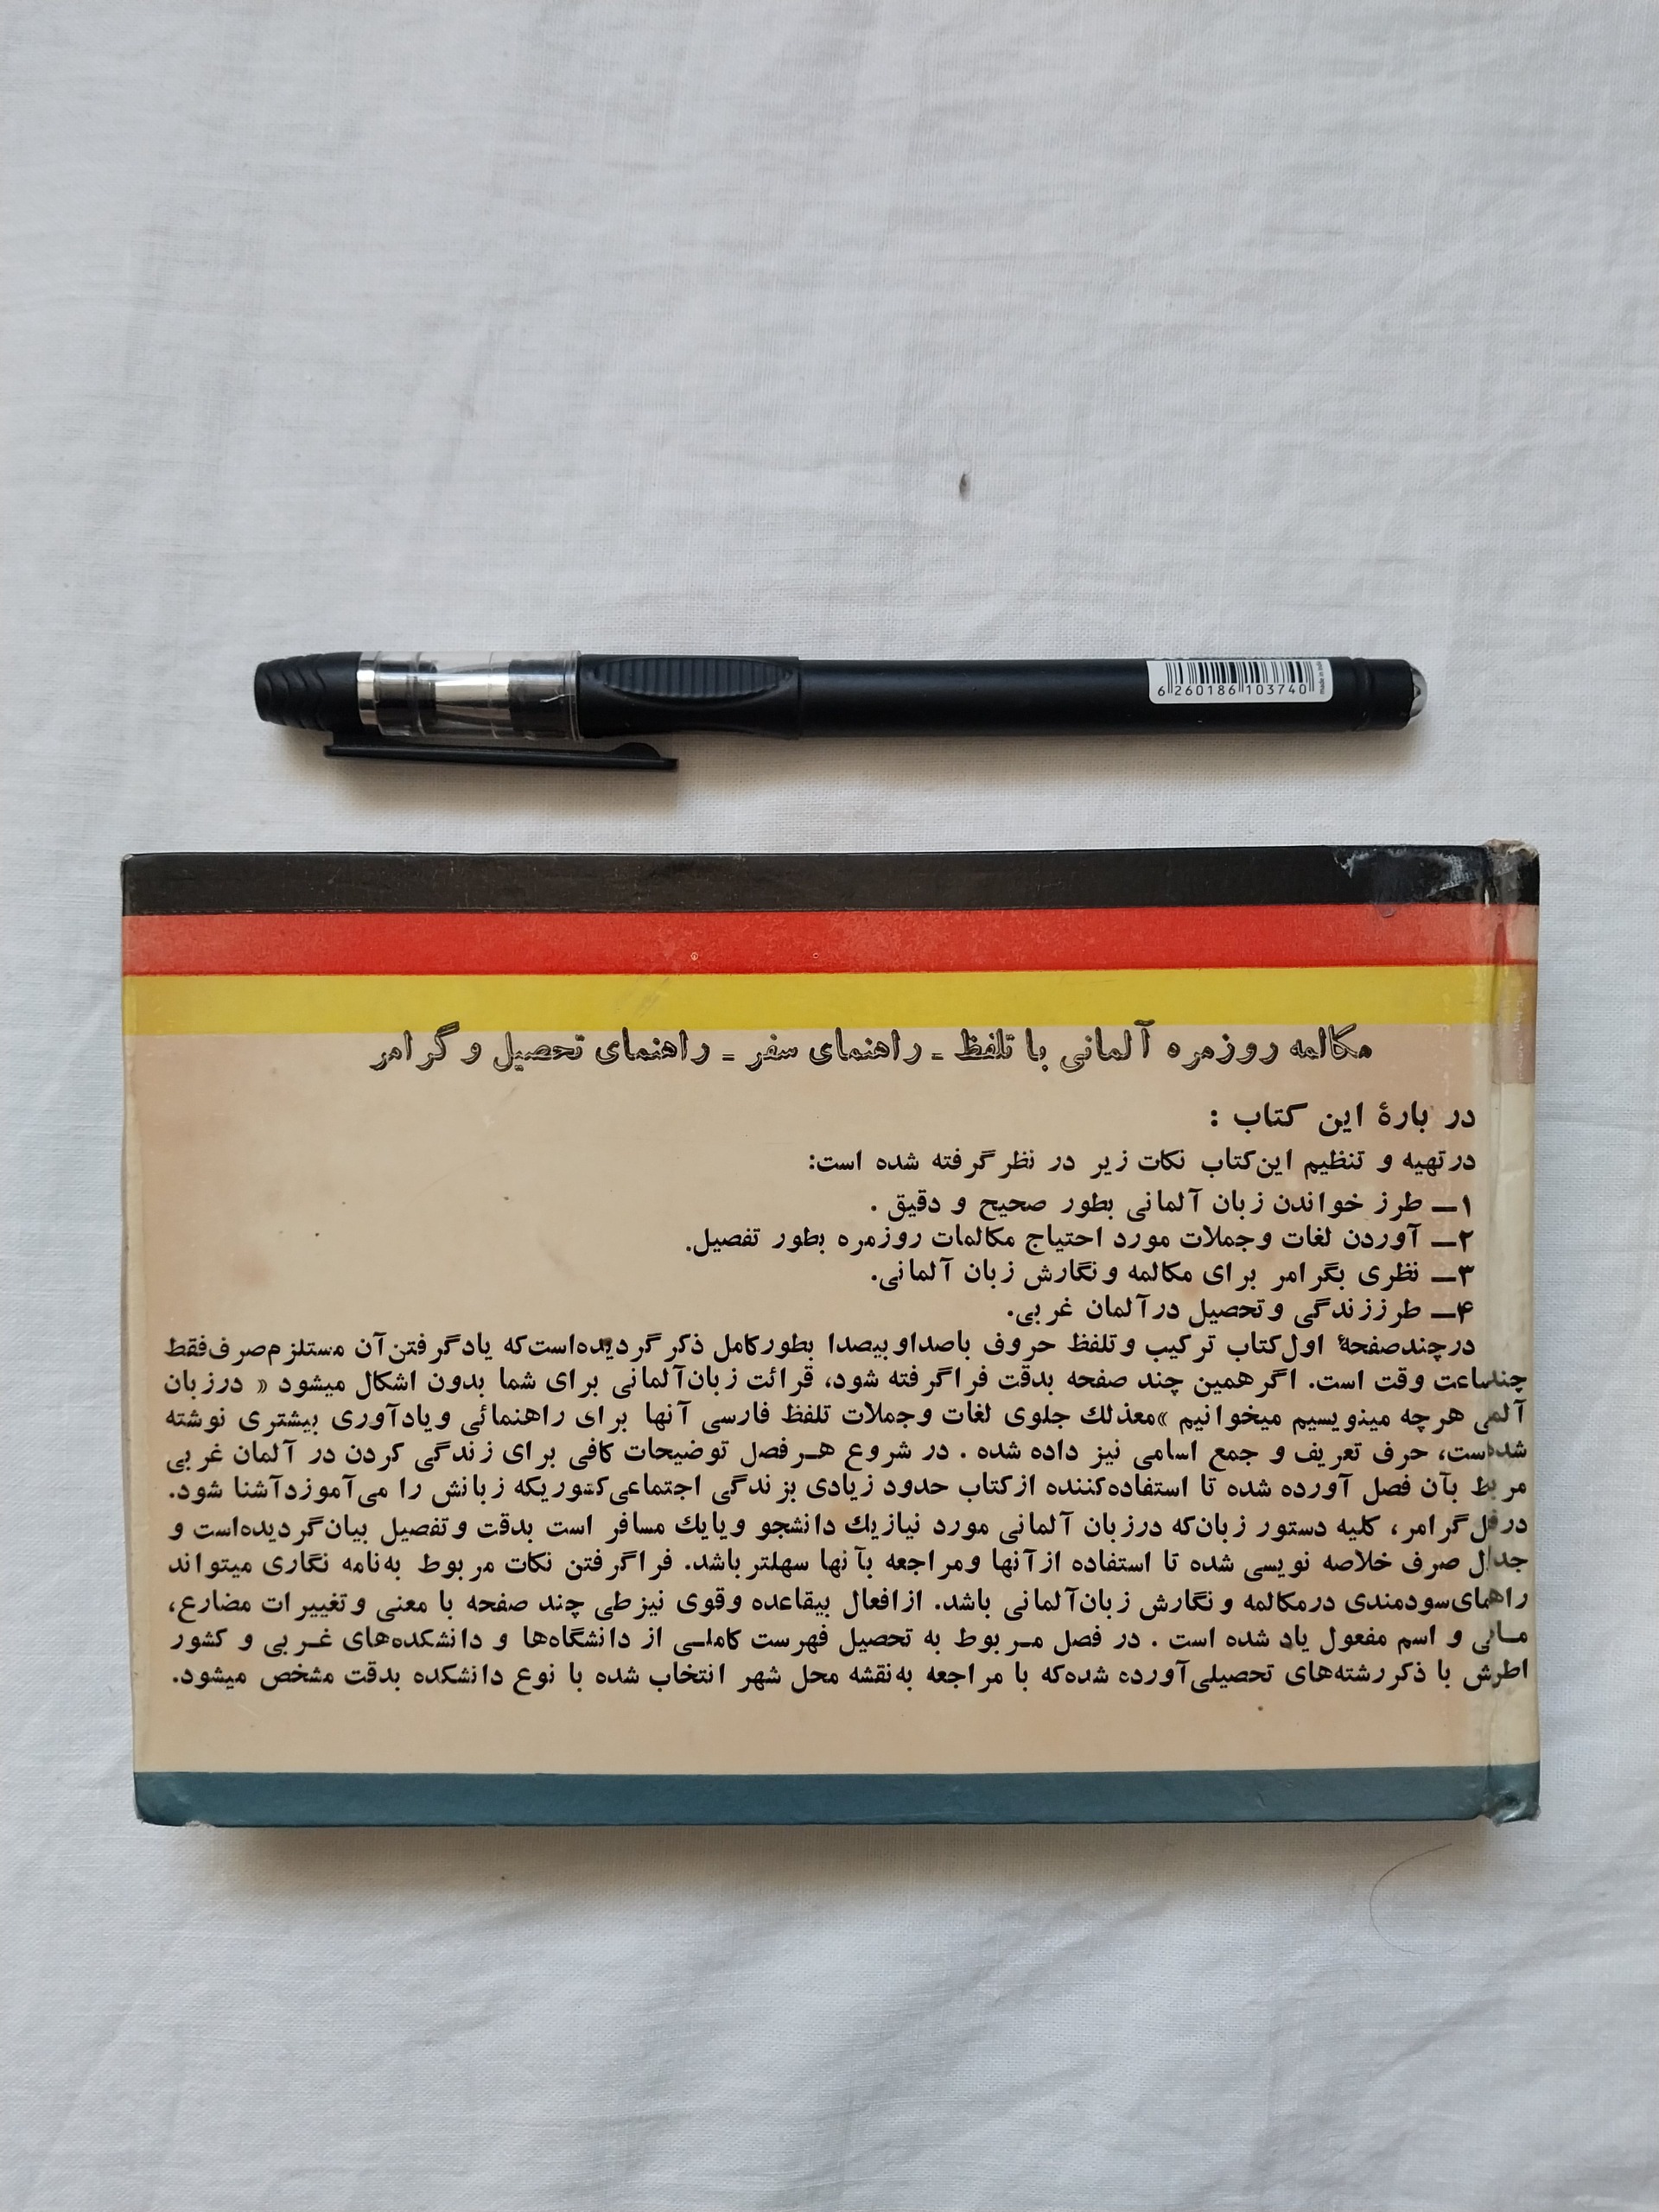 6 260186 103740
made in India
مکالمه روزمره آلمانی با تلفظ ـ راهنمای سفر ـ راهنمای تحصیل و گرامر
در بارهٔ این کتاب :
در تهیه و تنظیم این کتاب نکات زیر در نظر گرفته شده است:
۱ــ طرز خواندن زبان آلمانی بطور صحیح و دقیق .
۲ــ آوردن لغات و جملات مورد احتیاج مکالمات روزمره بطور تفصیل.
۳ــ نظری بگرامر برای مکالمه و نگارش زبان آلمانی.
۴ــ طرز زندگی و تحصیل در آلمان غربی.
در چند صفحهٔ اول کتاب ترکیب و تلفظ حروف باصدا و بیصدا بطور کامل ذکر گردیده است که یاد گرفتن آن مستلزم صرف فقط
چند ساعت وقت است. اگر همین چند صفحه بدقت فرا گرفته شود، قرائت زبان آلمانی برای شما بدون اشکال میشود « در زبان
هر چه مینویسیم میخوانیم » معذلك جلوی لغات و جملات تلفظ فارسی آنها برای راهنمائی و یادآوری بیشتری نوشته
شده است، حرف تعریف و جمع اسامی نیز داده شده . در شروع هـر فصل توضیحات کافی برای زندگی کردن در آلمان غربی
بآن فصل آورده شده تا استفاده کننده از کتاب حدود زیادی بزندگی اجتماعی کشوریکه زبانش را می‌آموزد آشنا شود.
گرامر، کلیه دستور زبان که در زبان آلمانی مورد نیاز یك دانشجو و یا یك مسافر است بدقت و تفصیل بیان گردیده است و
صرف خلاصه نویسی شده تا استفاده از آنها و مراجعه بآنها سهلتر باشد. فرا گرفتن نکات مربوط به نامه نگاری میتواند
راهنمای سودمندی در مکالمه و نگارش زبان آلمانی باشد. از افعال بیقاعده و قوی نیز طی چند صفحه با معنی و تغییرات مضارع،
و اسم مفعول یاد شده است . در فصل مـربوط به تحصیل فهرست کاملـی از دانشگاه‌ها و دانشکده‌های غـربی و کشور
با ذکر رشته‌های تحصیلی آورده شده که با مراجعه به نقشه محل شهر انتخاب شده با نوع دانشکده بدقت مشخص میشود.